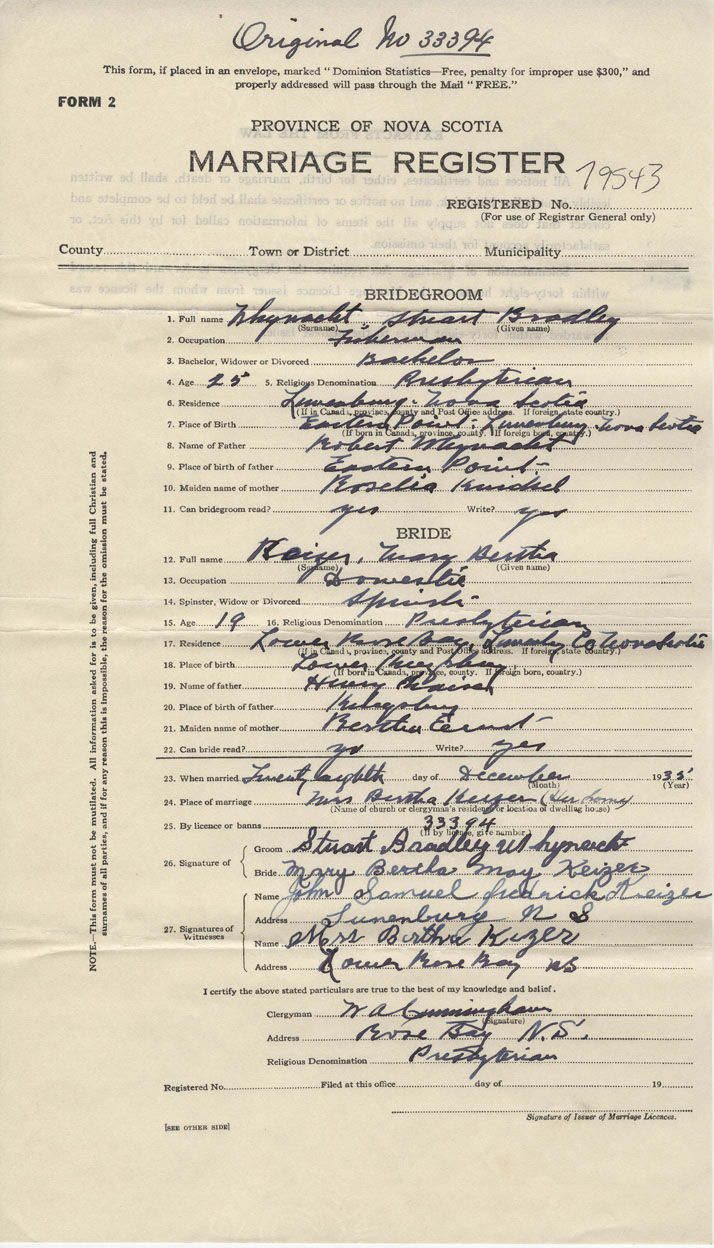 Original No 33394
This form, if placed in an envelope, marked "Dominion Statistics—Free, penalty for improper use $300," and
properly addressed will pass through the Mail "FREE."
FORM 2
PROVINCE OF NOVA SCOTIA
MARRIAGE REGISTER 79543
REGISTERED No.
(For use of Registrar General only)
County Town or District Municipality
BRIDEGROOM
1. Full name Whynacht Stuart Bradley
(Surname) (Given name)
2. Occupation Fisherman
3. Bachelor, Widower or Divorced Bachelor
4. Age 25 5. Religious Denomination Presbyterian
6. Residence Lunenburg. Nova Scotia
(If in Canada, province, county and Post Office address. If foreign, state country.)
7. Place of Birth Eastern Point, Lunenburg. Nova Scotia
(If born in Canada, province, county. If foreign born, country.)
8. Name of Father Robert Whynacht
9. Place of birth of father Eastern Point
10. Maiden name of mother Roselia
11. Can bridegroom read? yes Write? yes
BRIDE
12. Full name Keizer, Mary Bertha
(Surname) (Given name)
13. Occupation Domestic
14. Spinster, Widow or Divorced
15. Age 19 16. Religious Denomination Presbyterian
17. Residence Lower Rose Bay, Co Nova Scotia
(If in Canada, province, county and Post Office address. If foreign, state country.)
18. Place of birth Lower Kingsburg
(If born in Canada, province, county. If foreign born, country.)
19. Name of father Henry
20. Place of birth of father Kingsburg
21. Maiden name of mother Bertha Ernst
22. Can bride read? yes Write? yes
23. When married Twenty eighth day of December 1935
(Month) (Year)
24. Place of marriage Mrs Bertha Keizer (Her home)
(Name of church or clergyman's residence or location of dwelling house)
25. By licence or banns 33394
(If by licence, give number.)
26. Signature of
Groom Stuart Bradley Whynacht
Bride Mary Bertha May Keizer
27. Signatures of Witnesses
Name John Samuel fredrick Keizer
Address Lunenburg N S
Name Mrs Bertha Keizer
Address Lower Rose Bay NS
I certify the above stated particulars are true to the best of my knowledge and belief.
Clergyman W A Cunningham
(Signature)
Address Rose Bay N.S.
Religious Denomination Presbyterian
Registered No. Filed at this office day of 19
Signature of Issuer of Marriage Licences.
[SEE OTHER SIDE]
NOTE.—This form must not be mutilated. All information asked for is to be given, including full Christian and
surnames of all parties, and if for any reason this is impossible, the reason for the omission must be stated.